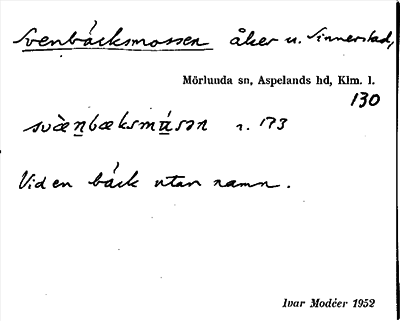 Svenbäcksmossen åker u. Sinnerstad,
Mörlunda sn, Aspelands hd, Klm. l.
130
svæ̀nbæksmúsən r. 173
Vid en bäck utan namn.
Ivar Modéer 1952